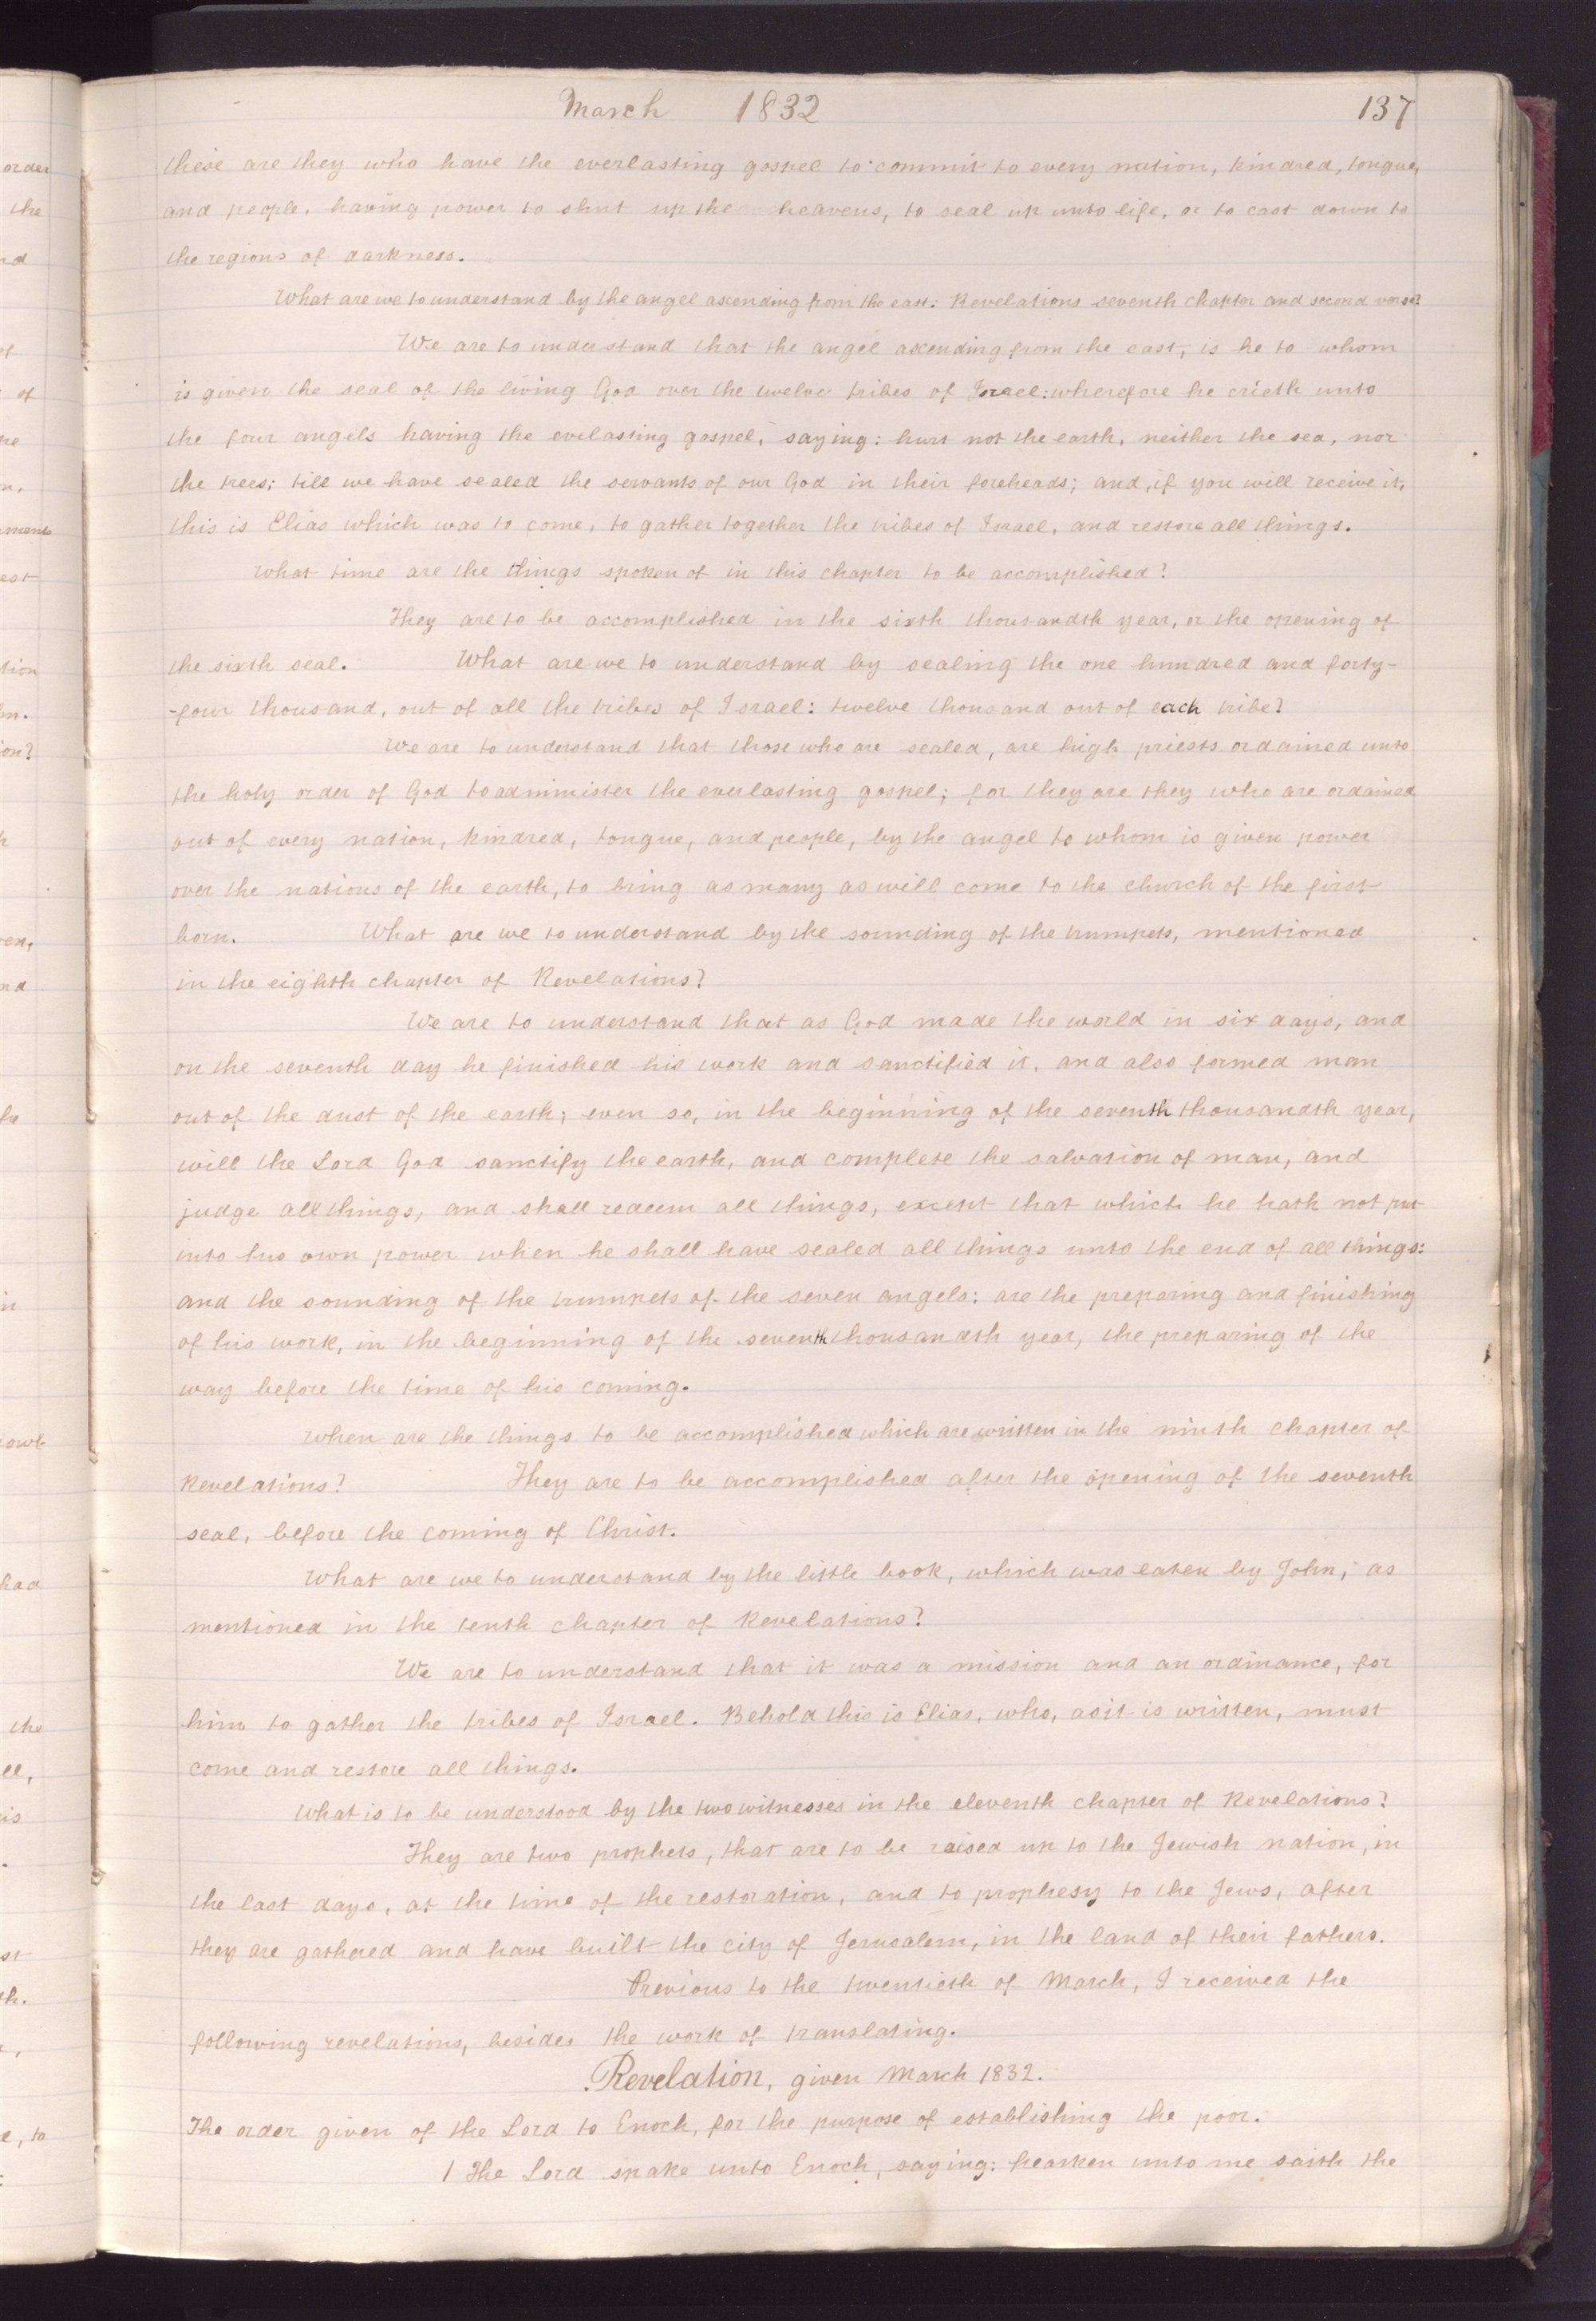 March 1832 137
these are they who have the everlasting gospel to commit to every nation, kindred, tongue,
and people, having power to shut up the heavens, to seal up unto life, or to cast down to
the regions of darkness.
What are we to understand by the angel ascending from the east: Revelations seventh chapter and second verse?
We are to understand that the angel ascending from the east, is he to whom
is given the seal of the living God over the twelve tribes of Israel: wherefore he crieth unto
the four angels having the evelasting gospel, saying: hurt not the earth, neither the sea, nor
the trees; till we have sealed the servants of our God in their foreheads; and, if you will receive it,
this is Elias which was to come, to gather together the tribes of Israel, and restore all things.
What time are the things spoken of in this chapter to be accomplished?
They are to be accomplished in the sixth thousandth year, or the opening of
the sixth seal. What are we to understand by sealing the one hundred and forty-
-four thousand, out of all the tribes of Israel: twelve thousand out of each tribe?
We are to understand that those who are sealed, are high priests ordained unto
the holy order of God to administer the everlasting gospel; for they are they who are ordained
out of every nation, kindred, tongue, and people, by the angel to whom is given power
over the nations of the earth, to bring as many as will come to the church of the first
born. What are we to understand by the sounding of the trumpets, mentioned
in the eighth chapter of Revelations?
We are to understand that as God made the world in six days, and
on the seventh day he finished his work and sanctified it, and also formed man
out of the dust of the earth; even so, in the beginning of the seventh thousandth year,
will the Lord God sanctify the earth, and complete the salvation of man, and
judge all things, and shall redeem all things, except that which he hath not put
into his own power when he shall have sealed all things unto the end of all things:
and the sounding of the trumpets of the seven angels: are the preparing and finishing
of his work, in the beginning of the seventh thousandth year, the preparing of the
way before the time of his coming.
When are the things to be accomplished which are written in the ninth chapter of
Revelations? They are to be accomplished after the opening of the seventh
seal, before the coming of Christ.
What are we to understand by the little book, which was eaten by John; as
mentioned in the tenth chapter of Revelations?
We are to understand that it was a mission and an ordinance, for
him to gather the tribes of Israel. Behold this is Elias, who, as it is written, must
come and restore all things.
What is to be understood by the two witnesses in the eleventh chapter of Revelations?
They are two prophets, that are to be raised up to the Jewish nation, in
the last days, at the time of the restoration, and to prophesy to the Jews, after
they are gathered and have built the city of Jerusalem, in the land of their fathers.
Previous to the twentieth of March, I received the
following revelations, besides the work of translating.
Revelation, given March 1832.
The order given of the Lord to Enoch, for the purpose of establishing the poor.
1 The Lord spake unto Enoch, saying: hearken unto me saith the